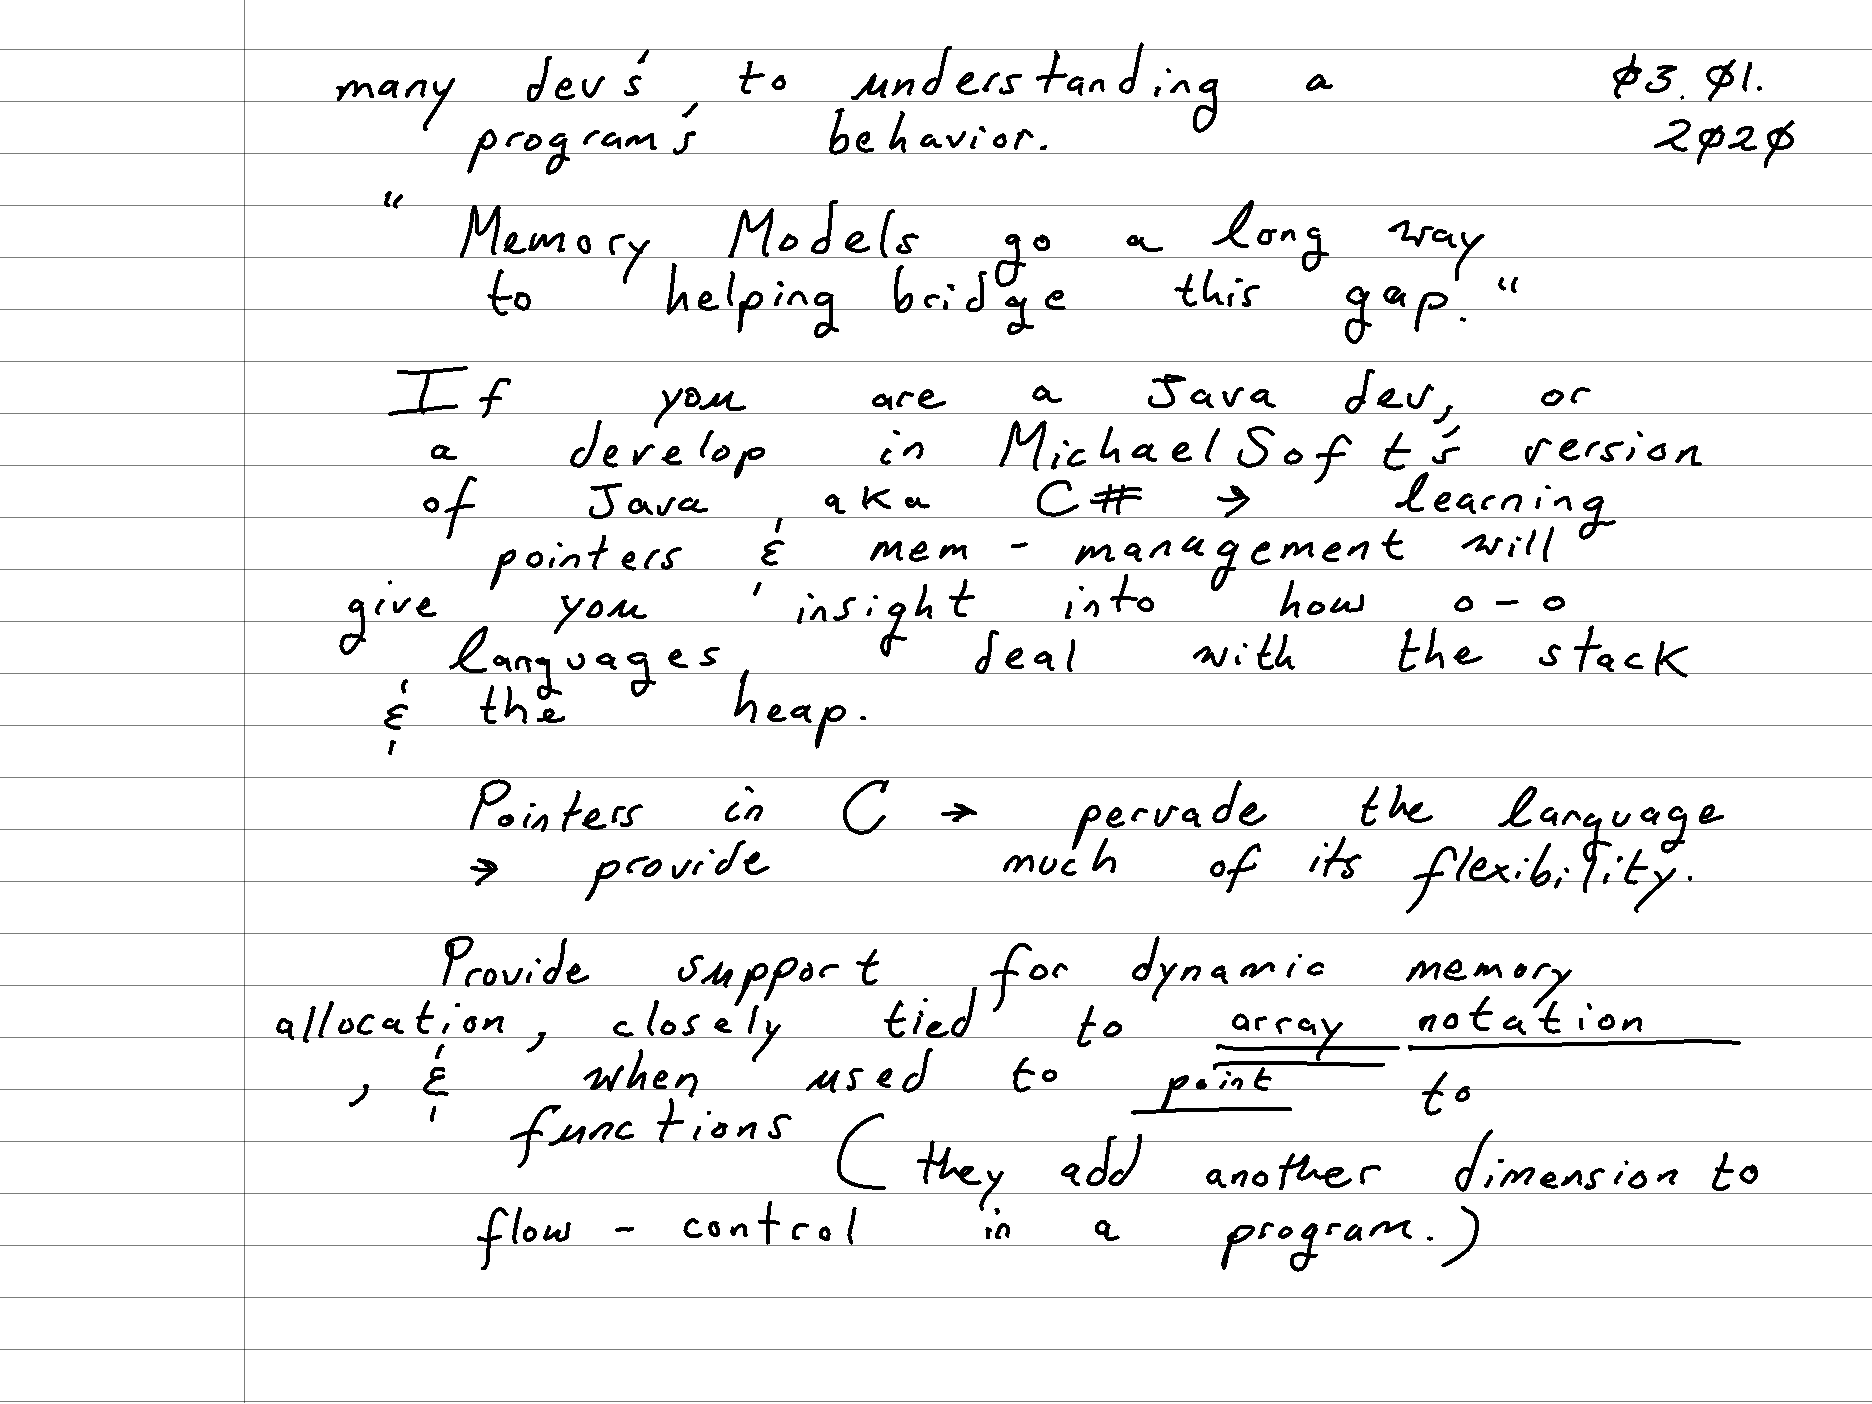 many dev's, to understanding a 03.01.
program's behavior. 2020
"Memory Models go a long way
to helping bridge this gap."
If you are a Java dev, or
a develop in MichaelSoft's version
of Java, aka C# → learning
pointers & mem-management will
give you insight into how o-o
languages deal with the stack
& the heap.
Pointers in C → pervade the language
→ provide much of its flexibility.
Provide support for dynamic memory
allocation, closely tied to array notation
, & when used to point to
functions (they add another dimension to
flow-control in a program.)